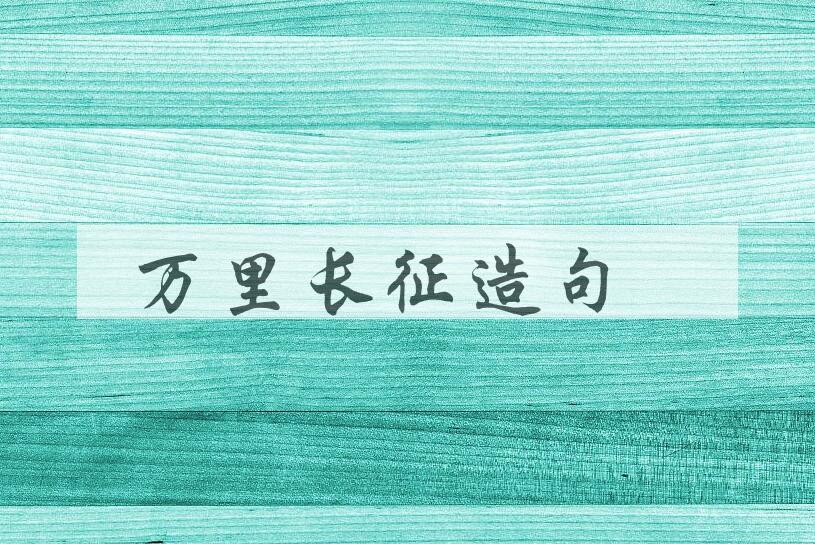 万里长征造句